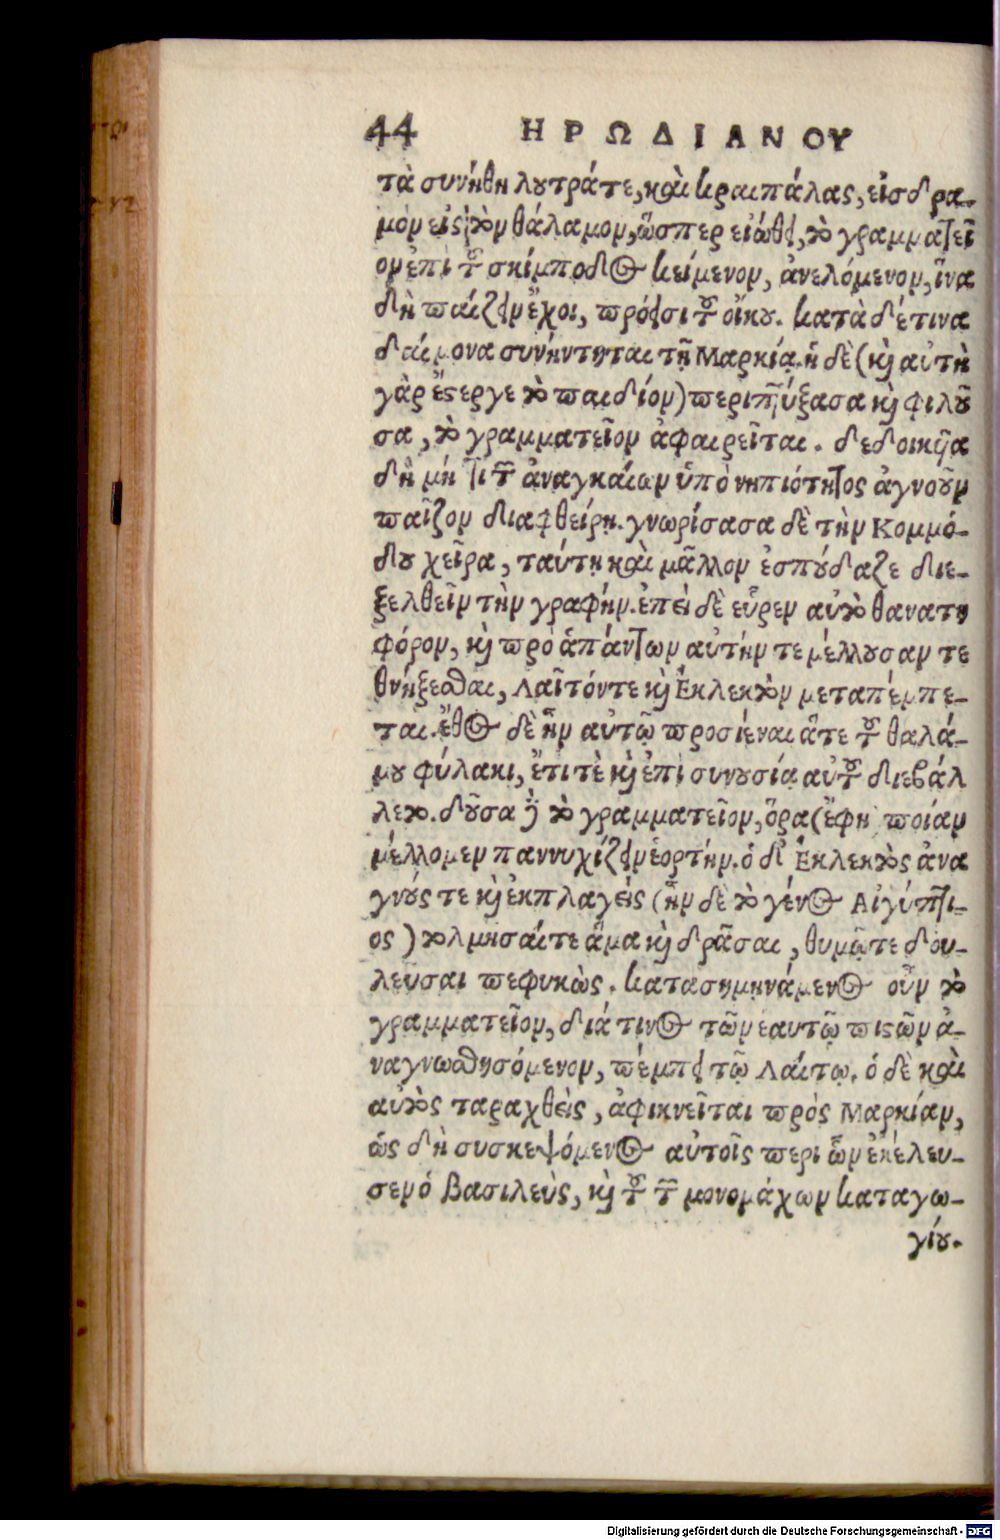 44 ΗΡΩΔΙΑΝΟΥ
τὰ συνήθη λουτράτε, καὶ κραιπάλας, εἰσδρα-
μὸν εἰς τὸν θάλαμον, ὥσπερ εἰώθει, τὸ γραμματεῖ
ον ἐπι τοῦ σκίμποδος κείμενον, ἀνελόμενον, ἵνα
δὴ παίζειν ἔχοι, πρόεισι τοῦ οἴκου. κατὰ δέ τινα
δαίμονα συνήντηται τῇ Μαρκίᾳ. ἡ δὲ (καὶ αὐτὴ
γὰρ ἔστεργε τὸ παιδίον) περιπτύξασα καὶ φιλοῦ
σα, τὸ γραμματεῖον ἀφαιρεῖται. δεδοικυῖα
δὴ μή τι τῶν ἀναγκαίων ὑπὸ νηπιότητος ἀγνοοῦν
παῖζον διαφθείρῃ. γνωρίσασα δὲ τὴν Κομμό-
δου χεῖρα, ταύτῃ καὶ μᾶλλον ἐσπούδαζε διε-
ξελθεῖν τὴν γραφήν. ἐπεὶ δὲ εὗρεν αὐτὸ θανατη
φόρον, καὶ πρὸ ἁπάντων αὐτήν τε μέλλουσαν τε
θνήξεσθαι, Λαῖτόν τε καὶ Ἔκλεκτον μεταπέμπε-
ται. ἔθος δὲ ἦν αὐτῷ προσιέναι ἅτε τοῦ θαλά-
μου φύλακι, ἔτι τὲ καὶ ἐπὶ συνουσίᾳ αὐτοῦ διεβάλ
λετο. δοῦσα δὲ τὸ γραμματεῖον, ὅρα (ἔφη ποίαν
μέλλομεν παννυχίζειν ἑορτήν. ὁ δὲ Ἔκλεκτος ἀνα
γνούς τε καὶ ἐκπλαγείς (ἦν δὲ τὸ γένος Αἰγύπτι-
ος) τολμῆσαί τε ἅμα καὶ δρᾶσαι, θυμῷτε δου-
λεῦσαι πεφυκὼς. κατασημηνάμενος οὖν τὸ
γραμματεῖον, διά τινος τῶν ἑαυτῷ πιστῶν ἀ-
ναγνωσθησόμενον, πέμπει τῷ Λαίτῳ. ὁ δὲ καὶ
αὐτὸς ταραχθεὶς, ἀφικνεῖται πρὸς Μαρκίαν,
ὡς δὴ συσκεψόμενος αὐτοῖς περι ὧν ἐκέλευ-
σεν ὁ βασιλεὺς, καὶ τοῦ τῶν μονομάχων καταγω-
γίου.
Digitalisierung gefördert durch die Deutsche Forschungsgemeinschaft - DFG